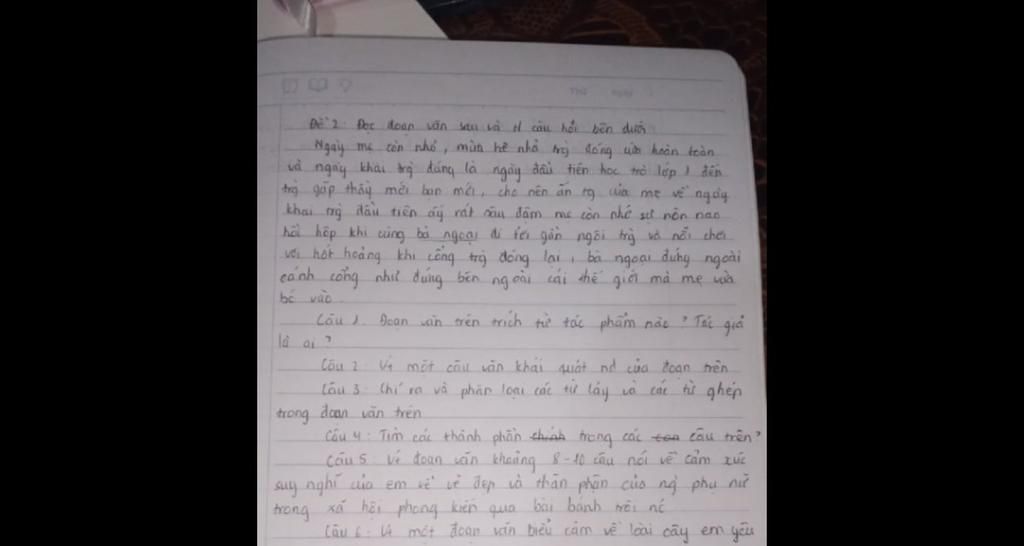 Thứ Ngày
Đề 2: Đọc đoạn văn sau và tl câu hỏi bên dưới
Ngày mẹ còn nhỏ, mùa hè nhà trg đóng cửa hoàn toàn
và ngày khai trg đúng là ngày đầu tiên học trò lớp 1 đến
trg gặp thầy mới bạn mới, cho nên ấn tg của mẹ về ngày
khai trg đầu tiên ấy rất sâu đậm mẹ còn nhớ sự nôn nao
hồi hộp khi cùng bà ngoại đi tới gần ngôi trg và nỗi chơi
vơi hốt hoảng khi cổng trg đóng lại, bà ngoại đứng ngoài
cánh cổng như đứng bên ngoài cái thế giới mà mẹ vừa
bc vào.
Câu 1. Đoạn văn trên trích từ tác phẩm nào? Tác giả
là ai?
Câu 2: Vt một câu văn khái quát nd của đoạn trên
Câu 3: Chỉ ra và phân loại các từ láy và các từ ghép
trong đoạn văn trên
Câu 4: Tìm các thành phần chính trong các câu trên?
Câu 5: Vt đoạn văn khoảng 8-10 câu nói về cảm xúc
suy nghĩ của em về vẻ đẹp và thân phận của ng phụ nữ
trong xã hội phong kiến qua bài bánh trôi nc
Câu 6: Vt một đoạn văn biểu cảm về loài cây em yêu